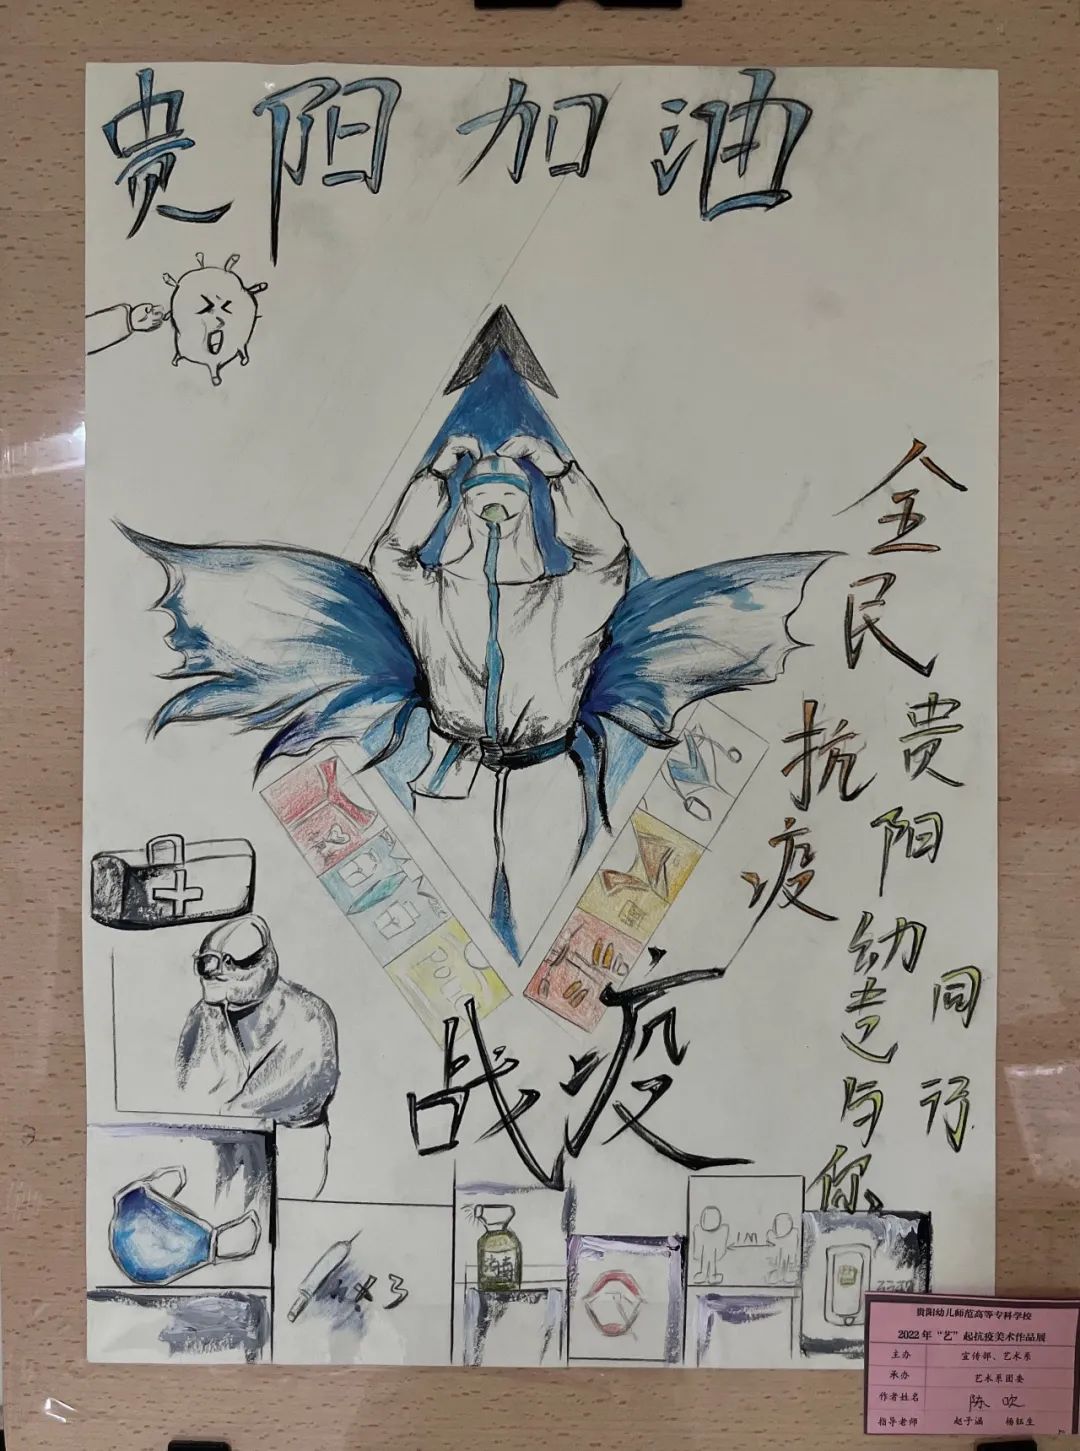 贵阳加油
全民抗疫
贵阳幼专与你
同行
战疫
POLIC
×3
1M
贵阳幼儿师范高等专科学校
2022年“艺”起抗疫美术作品展
主办 宣传部、艺术系
承办 艺术系团委
作者姓名 陈吹
指导老师 赵子涵 杨钰生